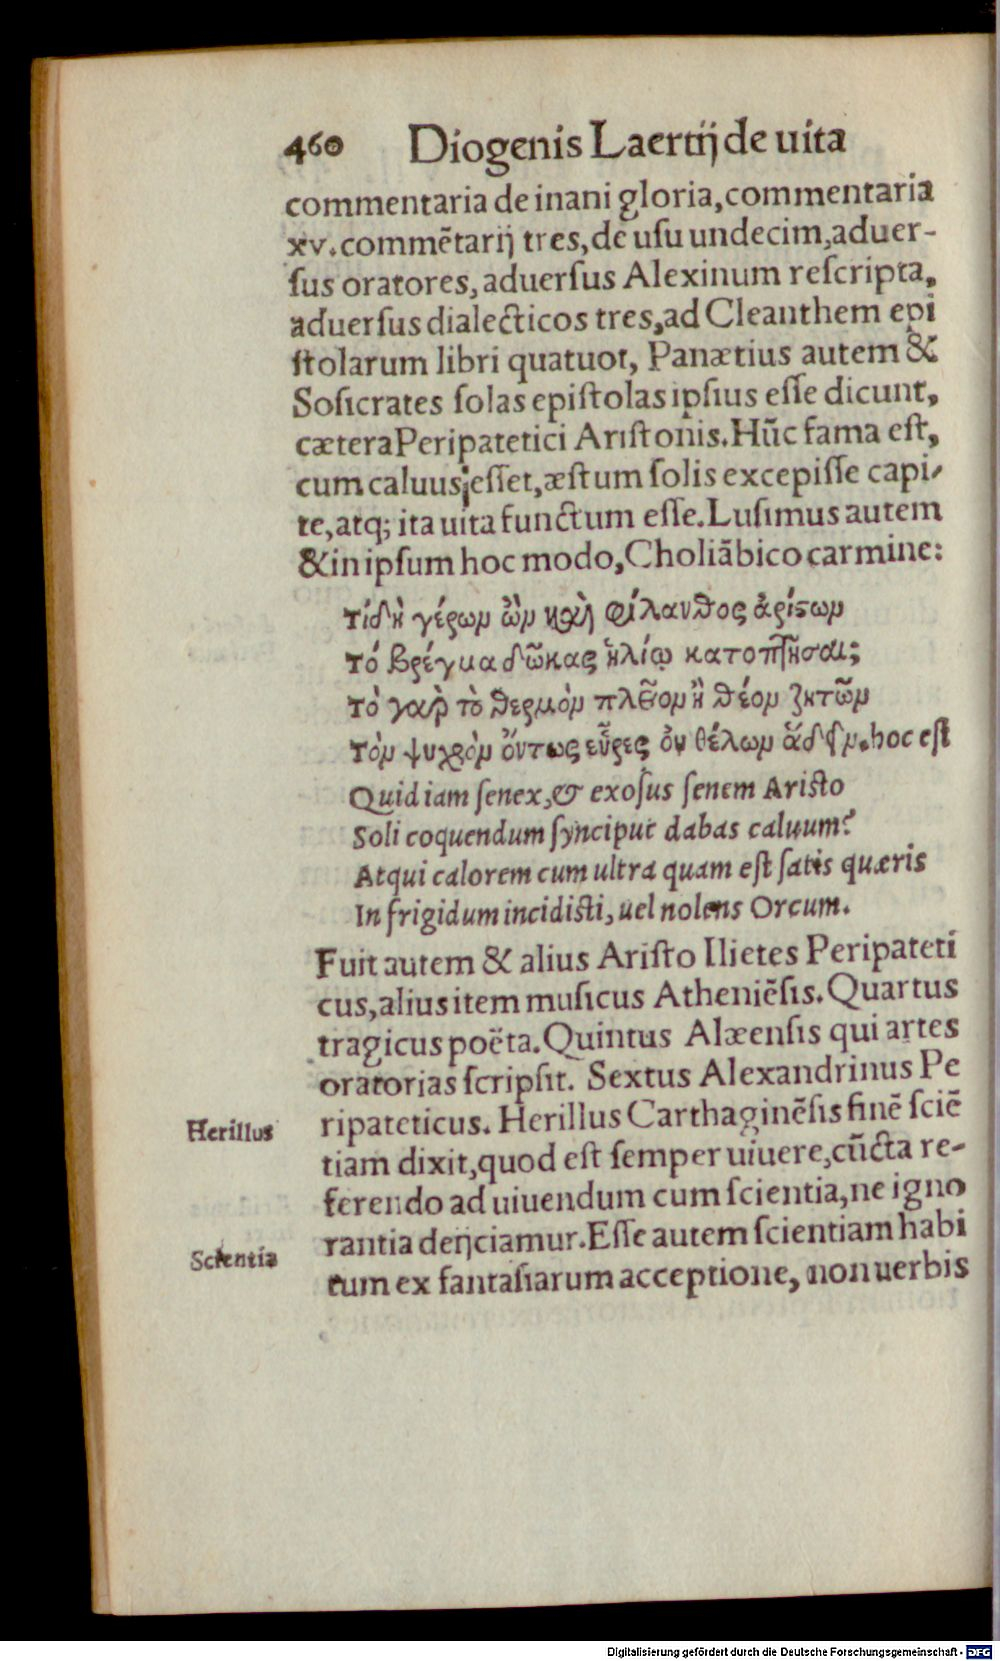 460 Diogenis Laertij de uita
commentaria de inani gloria, commentaria
xv. commētarij tres, de uſu undecim, aduer-
ſus oratores, aduerſus Alexinum reſcripta,
aduerſus dialecticos tres, ad Cleanthem epi
ſtolarum libri quatuor, Panætius autem &
Soſicrates ſolas epiſtolas ipſius eſſe dicunt,
cætera Peripatetici Ariſtonis. Hūc fama eſt,
cum caluus eſſet, æſtum ſolis excepiſſe capi-
te, atq; ita uita functum eſſe. Luſimus autem
& in ipſum hoc modo, Choliābico carmine:
τί δὴ γέρων ὢν καὶ φίλανθος ἀρίςων
τό βρέγμα δῶκας ἡλίῳ κατοπτῆσαι;
τὸ γαρ τὸ θερμὸν πλεῖον ἢ θέον ζητῶν
τὸν ψυχρὸν ὄντως εὗρες οὐ θέλων ἅδην. hoc eſt
Quid iam ſenex, & exoſus ſenem Ariſto
Soli coquendum ſynciput dabas caluum?
Atqui calorem cum ultra quam eſt ſatis quæris
In frigidum incidiſti, uel nolens Orcum.
Fuit autem & alius Ariſto Ilietes Peripateti
cus, alius item muſicus Atheniēſis. Quartus
tragicus poëta. Quintus Alæenſis qui artes
oratorias ſcripſit. Sextus Alexandrinus Pe
ripateticus. Herillus Carthaginēſis finē ſciē
Herillus
tiam dixit, quod eſt ſemper uiuere, cūcta re-
ferendo ad uiuendum cum ſcientia, ne igno
rantia deijciamur. Eſſe autem ſcientiam habi
Scientia
tum ex fantaſiarum acceptione, non uerbis
Digitalisierung gefördert durch die Deutsche Forschungsgemeinschaft - DFG